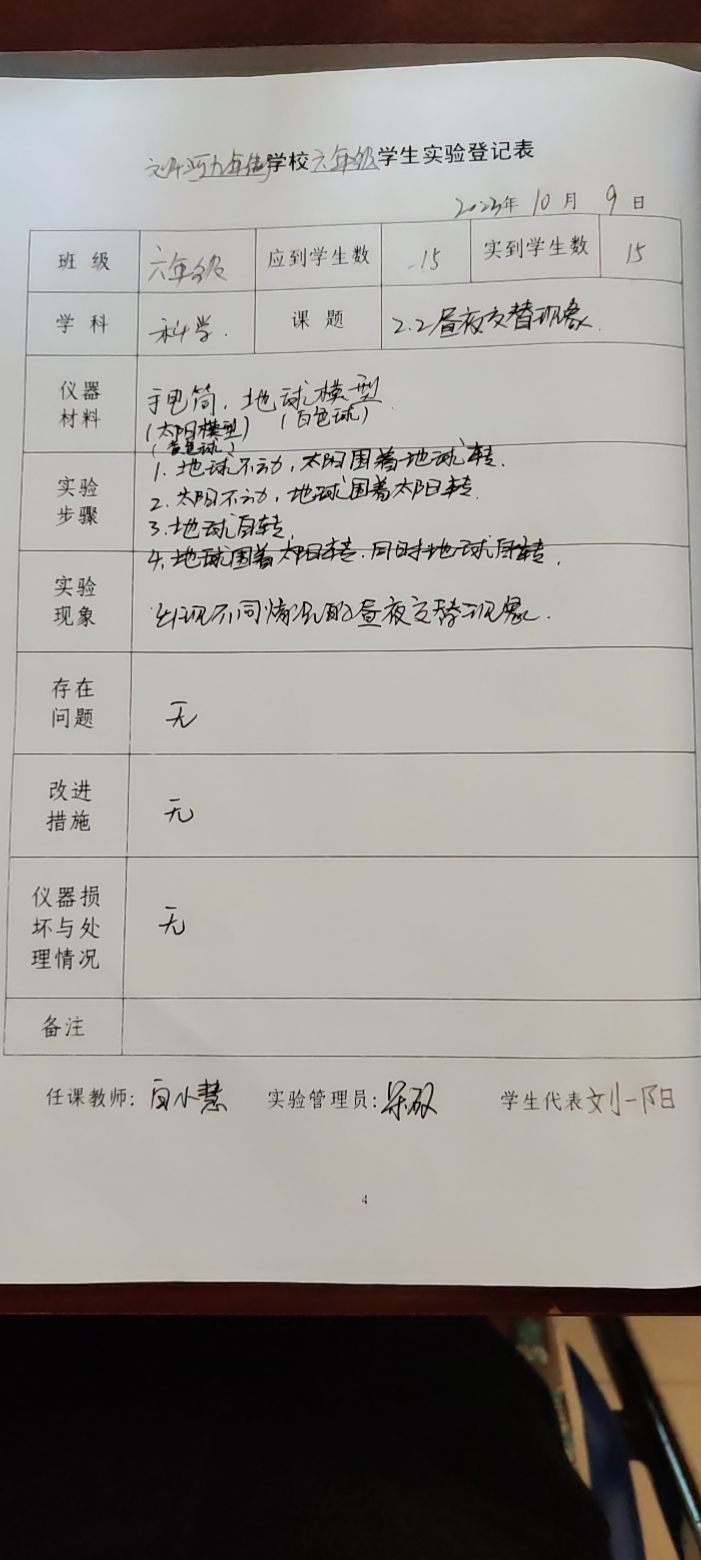 九年制学校六年级学生实验登记表
2023年 10 月 9 日
班 级 六年级 应到学生数 15 实到学生数 15
学 科 科学. 课 题 2.2昼夜交替现象.
仪器
材料
手电筒, 地球模型
(太阳模型) (白色球)
(黄色球)
实验
步骤
1. 地球不动, 太阳围着地球转.
2. 太阳不动, 地球围着太阳转.
3. 地球自转.
4. 地球围着太阳转. 同时地球自转.
实验
现象
出现不同情况的昼夜交替现象.
存在
问题
无
改进
措施
无
仪器损
坏与处
理情况
无
备注
任课教师: 白小慧 实验管理员: 学生代表 刘一阳
4